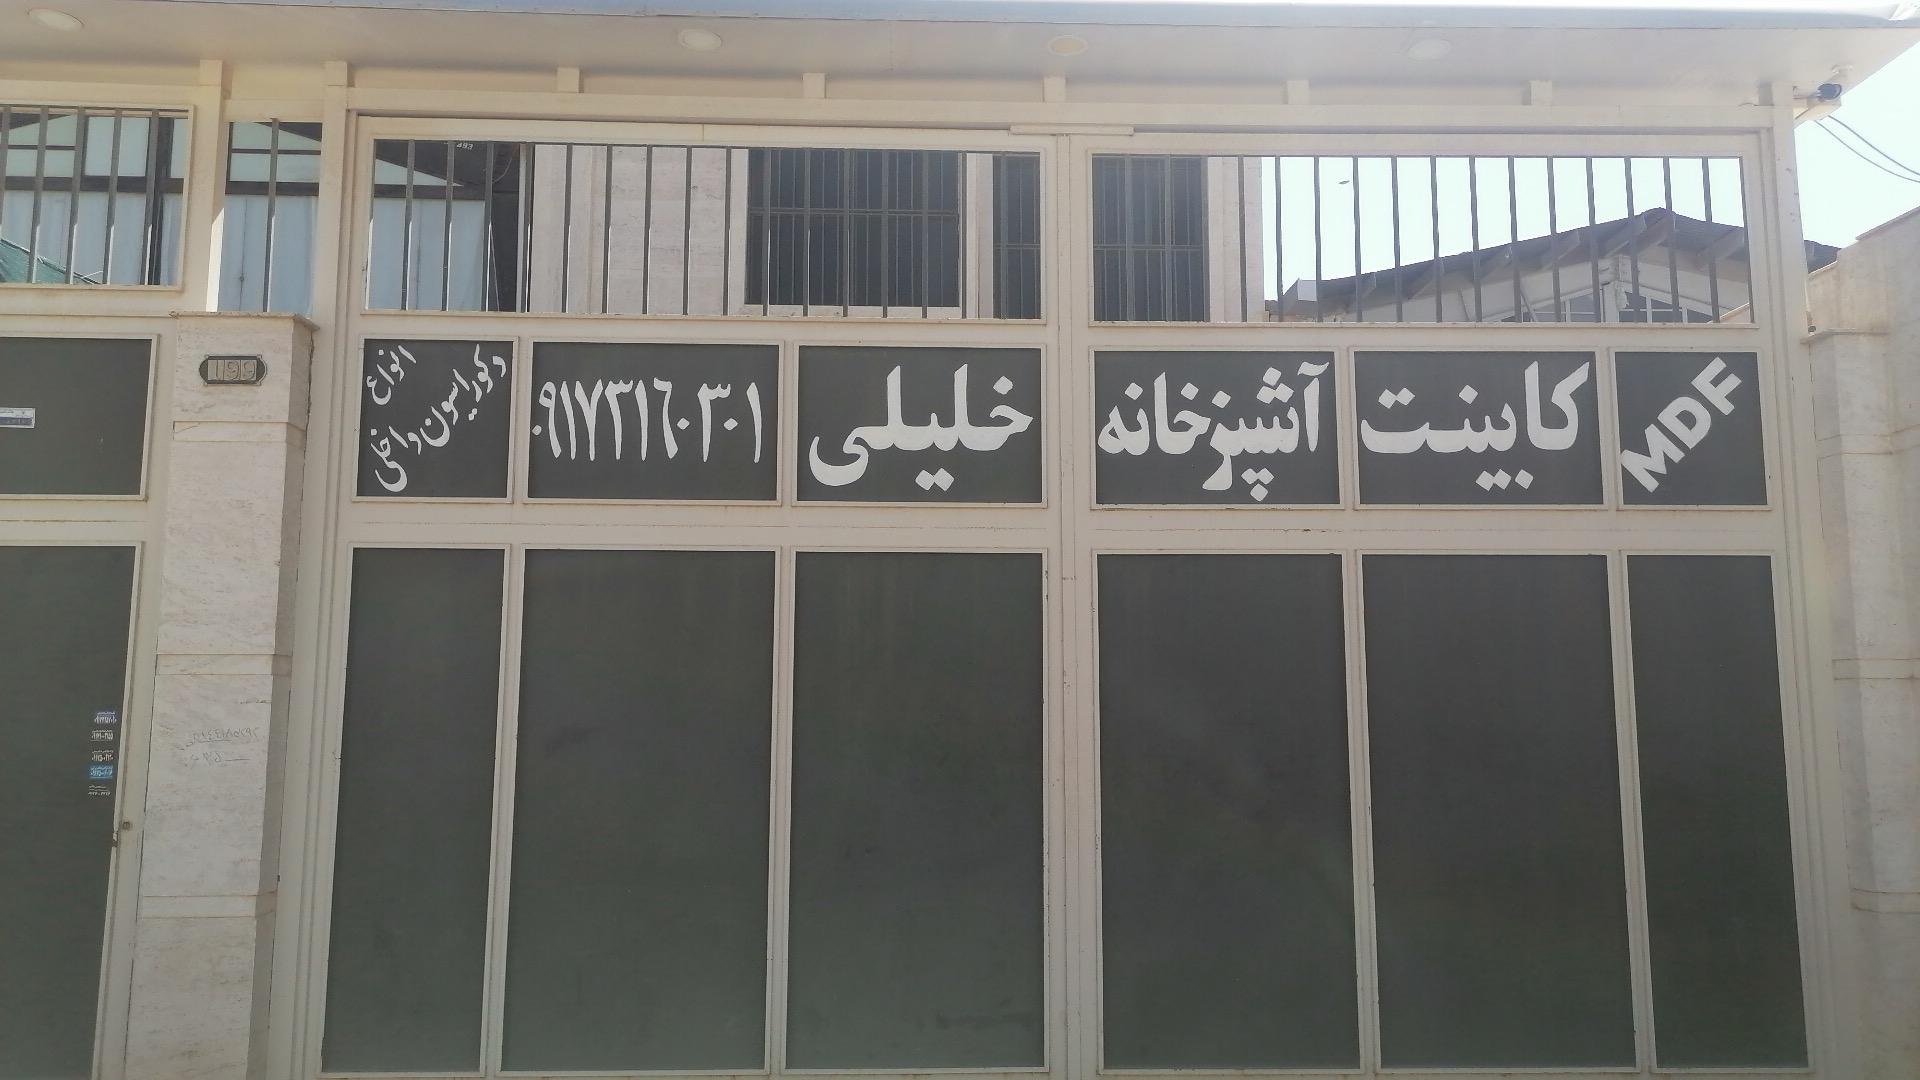 MDF
کابینت
آشپزخانه
خلیلی
۰۹۱۷۳۱۶۰۳۰۱
انواع
دکوراسیون داخلی
199